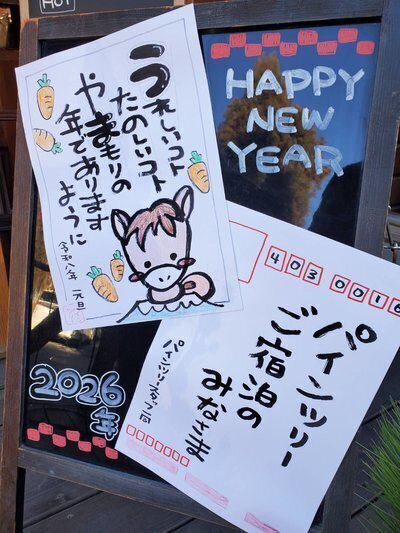 HOT
HAPPY
NEW
YEAR
うれしいコト
たのしいコト
やままもりの
年でありますように
令和八年 元旦
403 0016
パインツリー
ご宿泊の
みなさま
2026年